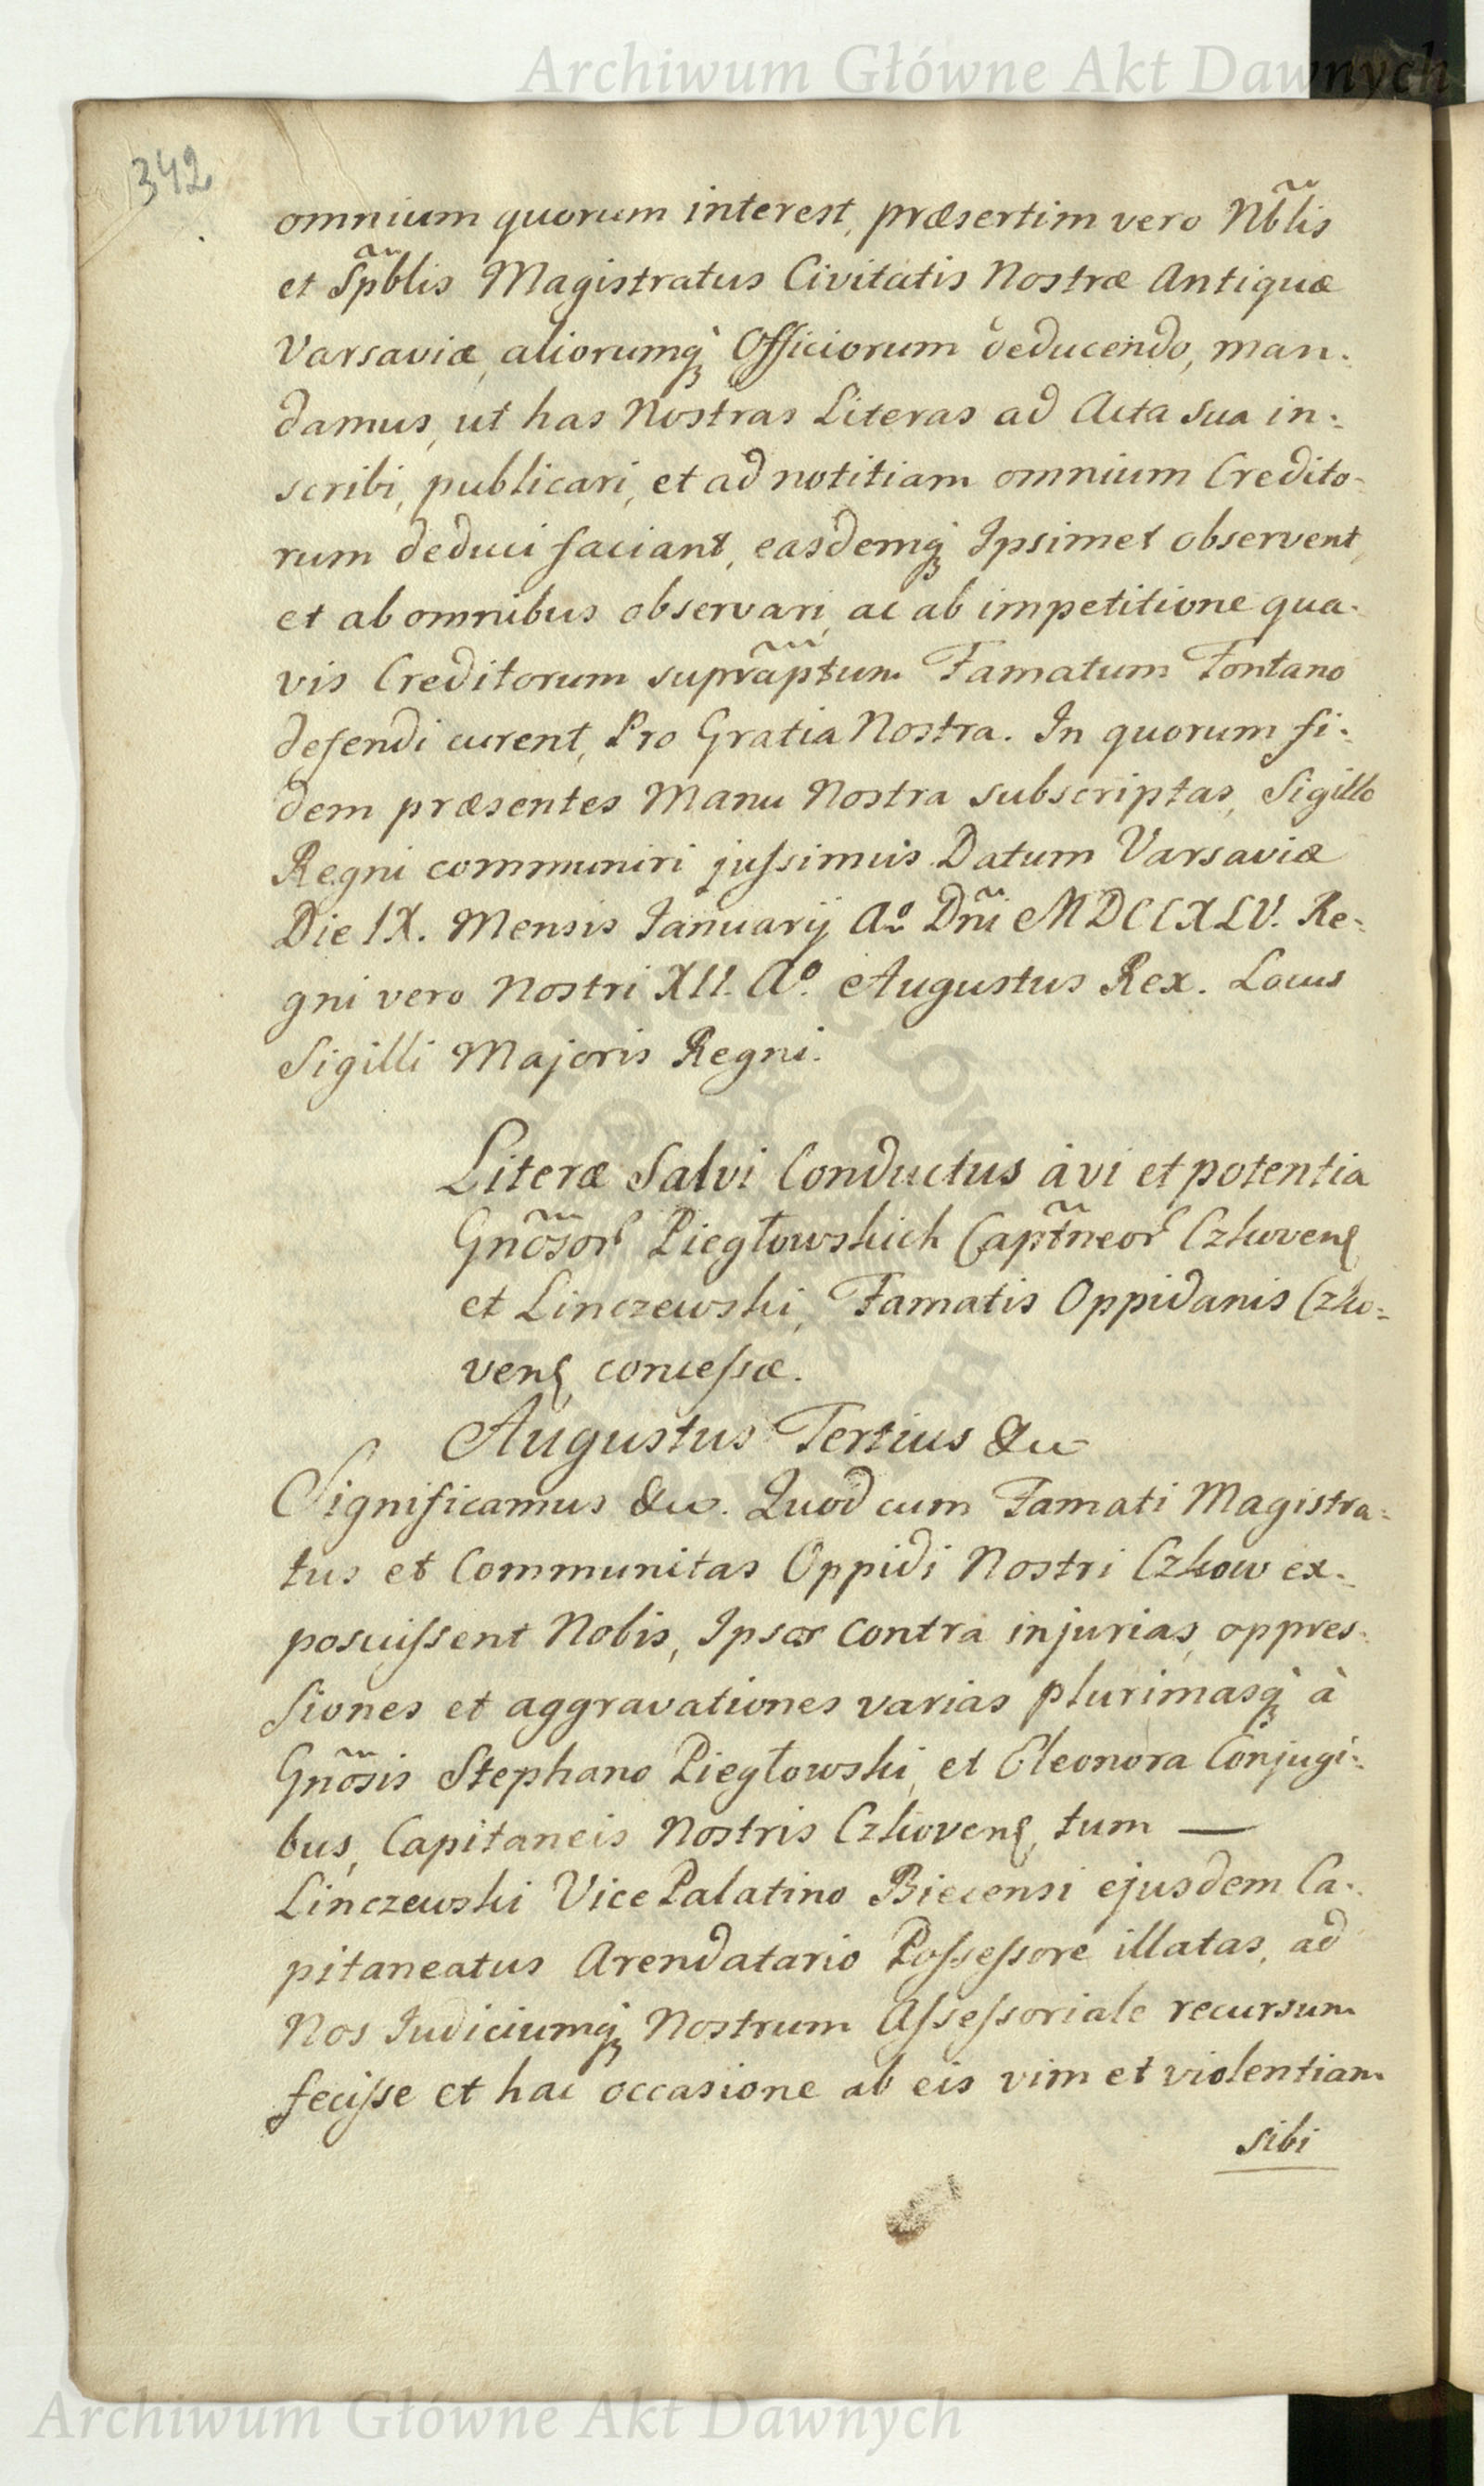 Archiwum Główne Akt Dawnych
342
omnium quorum interest, præsertim vero Nb̃lis
et Sp̃blis Magistratus Civitatis Nostræ Antiquæ
Varsaviæ, aliorumq̨ Officiorum deducendo, man-
damus, ut has Nostras Literas ad Acta sua in-
scribi, publicari, et ad notitiam omnium Credito-
rum deduci faciant, easdemq̨ Ipsimet observent,
et ab omnibus observari, ac ab impetitione qua-
vis Creditorum suprap̃tum Famatum Fontano
defendi curent, Pro Gratia Nostra. In quorum fi-
dem præsentes Manu Nostra subscriptas, Sigillo
Regni communiri jussimus Datum Varsaviæ
Die IX. Mensis Januarij Aº Dñi MDCCXLV. Re-
gni vero Nostri XII. Aº. Augustus Rex. Locus
Sigilli Majoris Regni.
Literæ Salvi Conductus à vi et potentia
Gnõsor Piegłowskich Capt̃neor Czhovens
et Linczewski, Famatis Oppidanis Czho-
vens concessæ.
Augustus Tertius &c
Significamus &c. Quod cum Famati Magistra-
tus et Communitas Oppidi Nostri Czhow ex-
posuissent Nobis, Ipsos contra injurias, oppres-
siones et aggravationes varias plurimasq̨ à
Gnõsis Stephano Piegłowski, et Eleonora Conjugi-
bus, Capitaneis Nostris Czhovens, tum —
Linczewski Vice Palatino Biecensi ejusdem Ca-
pitaneatus Arendatario Possessore illatas, ad
Nos Judiciumq̨ Nostrum Assessoriale recursum
fecisse et hac occasione ab eis vim et violentiam
sibi
Archiwum Główne Akt Dawnych